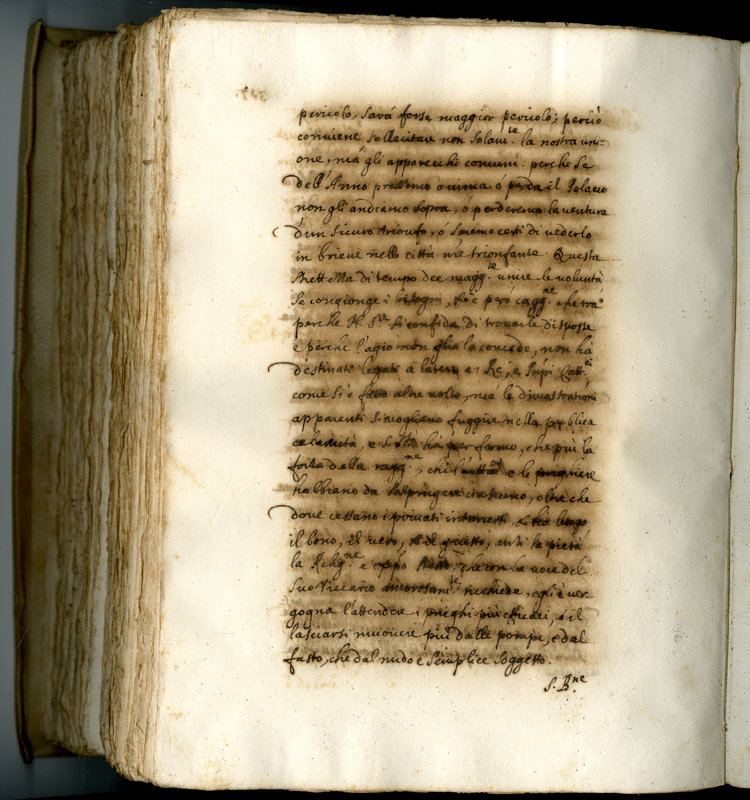 pericolo, sarà forse maggior pericolo; perciò
conviene sollecitare non solam.te la nostra uni=
one, mà gli apparecchi communi: perche se
dell'Anno prossimo o uinca ó perda il Polacco
non gli andiamo sopra, ó perderemo la ventura
d'un sicuro trionfo, ó saremo certi di uederlo
in brieue nelle città n're trionfante. Questa
strettezza di tempo dee magg.te unire le uoluntà
se congionge i bisogni, però cagg.ne che
perche N. S.re si confida di trouarle disposte
e perche l'agio non glia la concede, non há
destinati legati à latere a i Re, e Pn'pi Catt.ci
come si è fatto altre uolte, mà le dimostrationi
apparenti si uogliono fuggire nella publica
calamità, e há per fermo, che più la
forza della ragg.ne, che l'autt.à e le preghiere
habbiano da spingere ciascuno, oltre che
doue cessano i priuati interessi, luogo
il bono, il uero, il giusto, anti la pietà
la Relig.ne e che con la uoce del
suo Viccario amorosam.te richiede, egli è uer
gogna l'attendere i prieghi più efficaci, é il
lasciarsi muouere più dalle pompe, e dal
fasto, che dal nudo e semplice soggetto.
S. B.ne